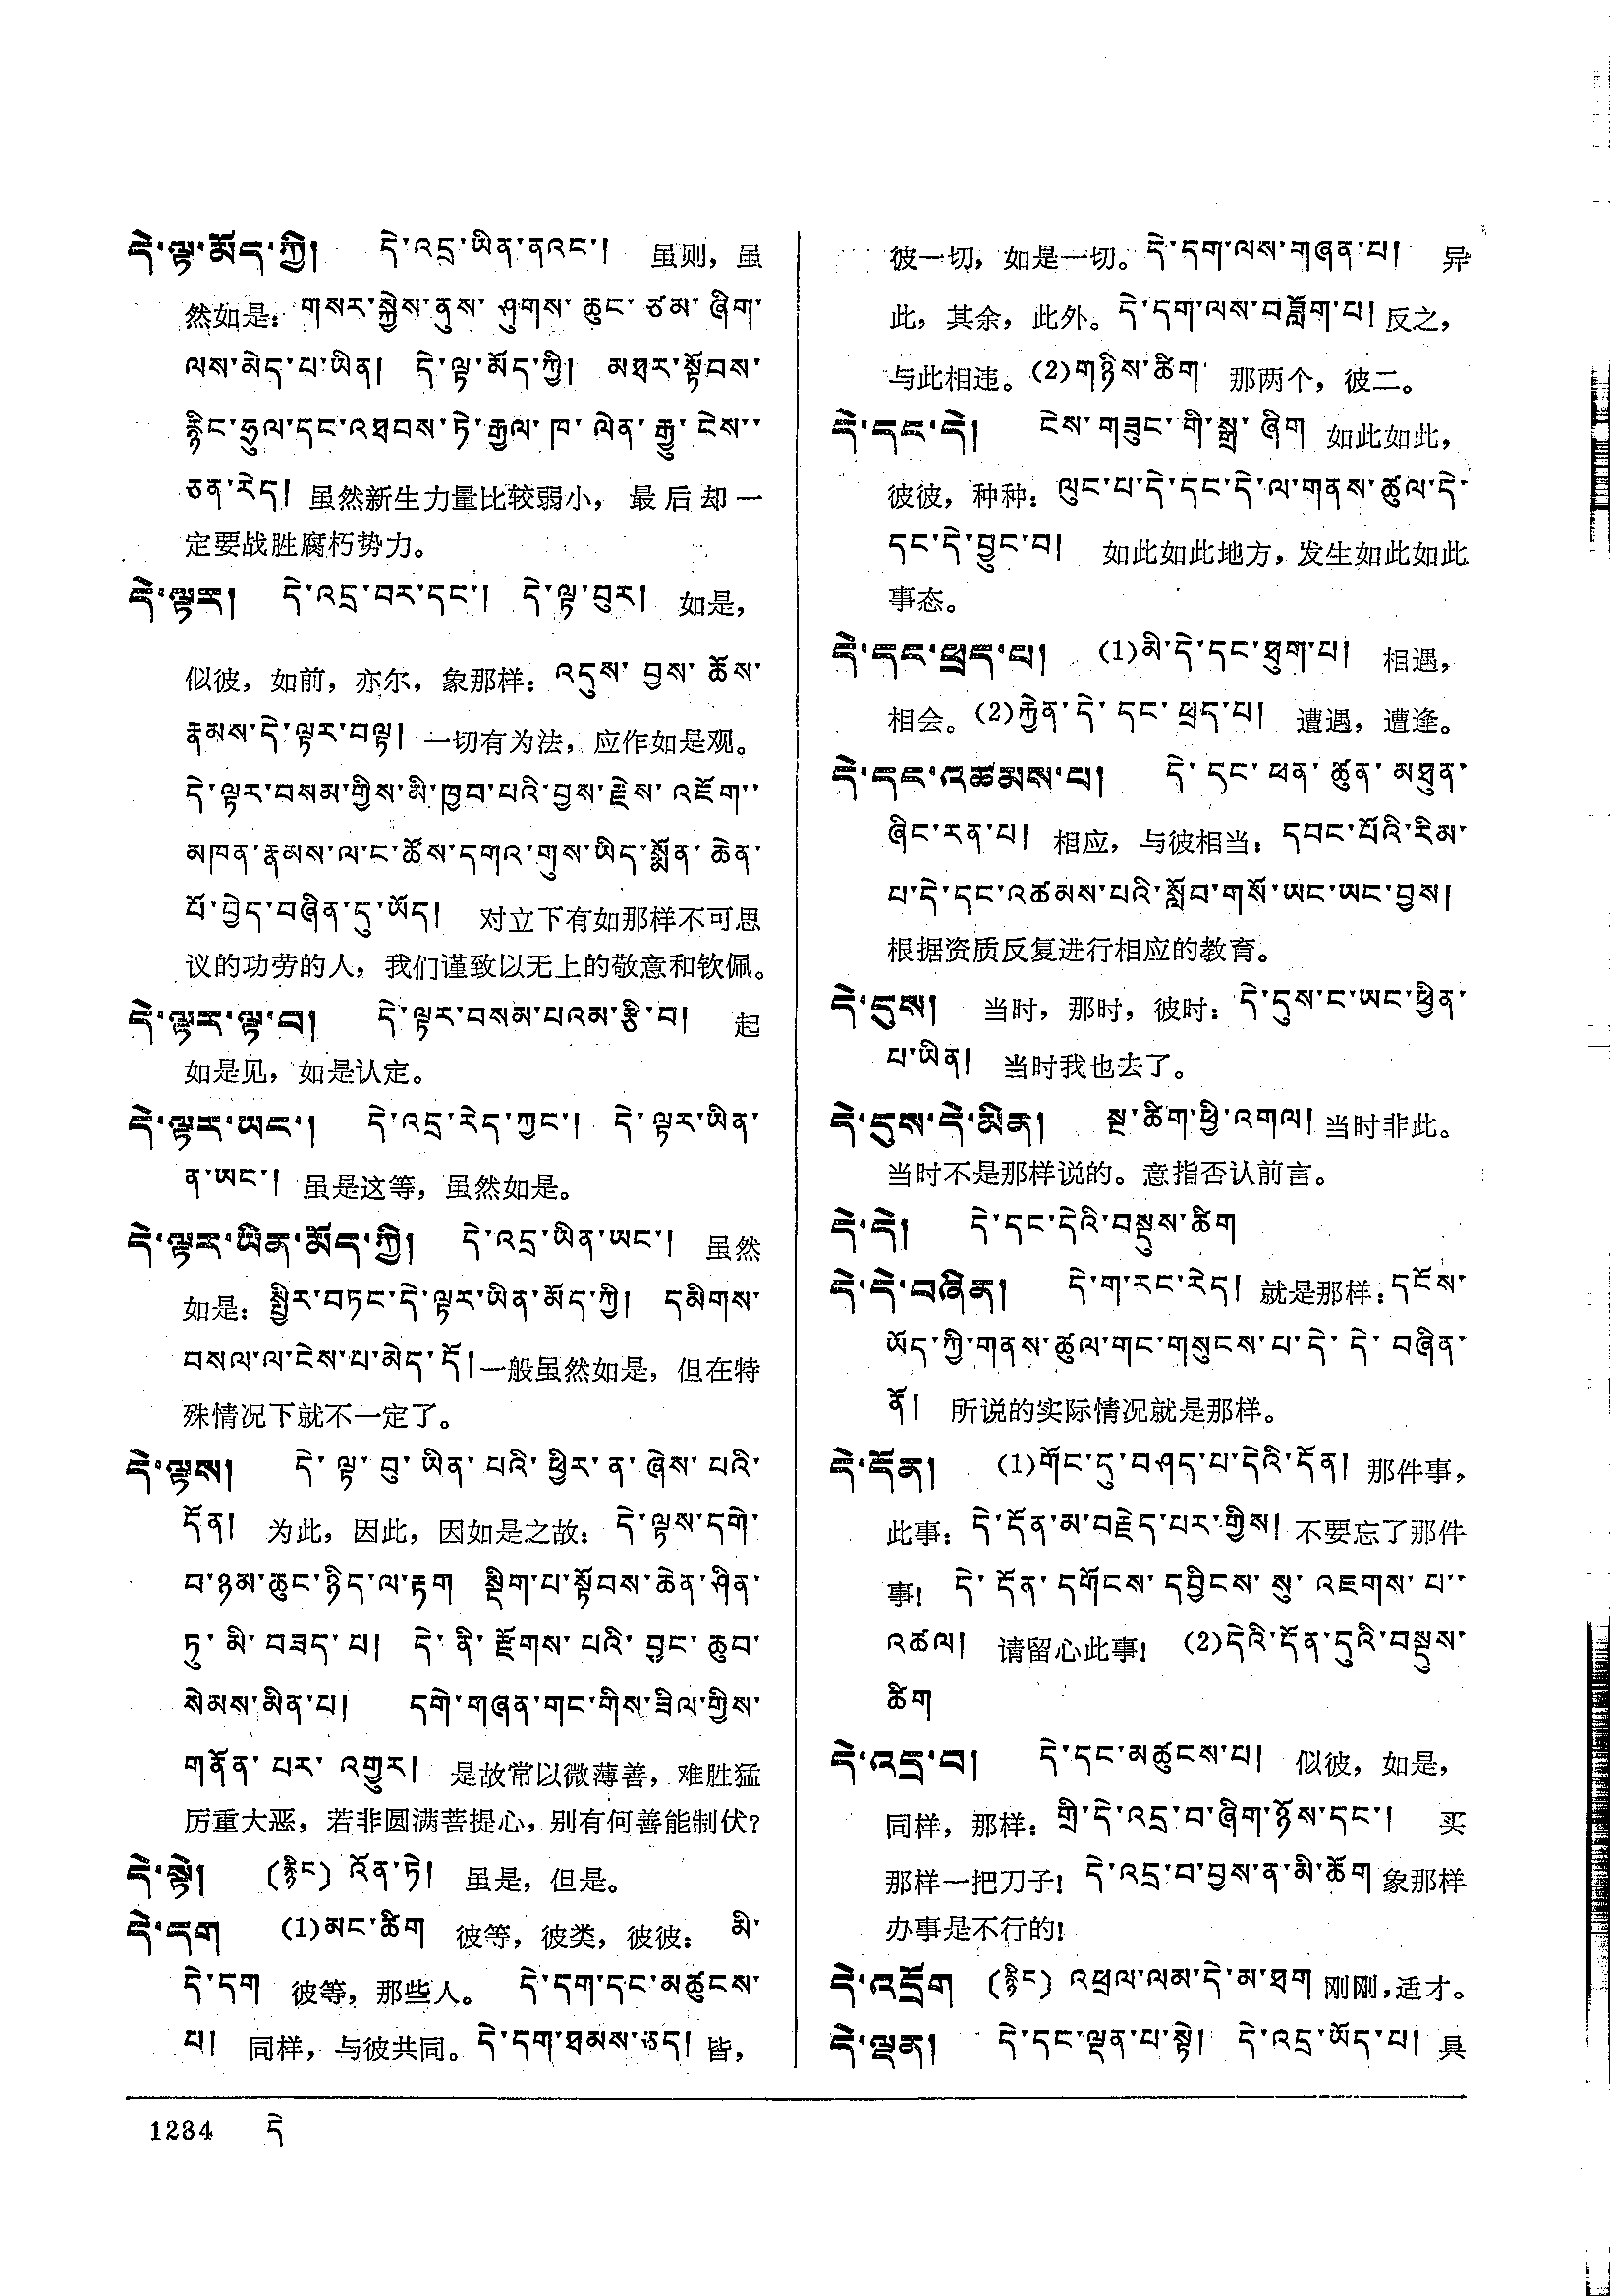 དེ་ལྟ་མོད་ཀྱི། དེ་འདྲ་ཡིན་ནའང་། 虽则，虽
然如是：གསར་སྐྱེས་ནུས་ཤུགས་ཆུང་ཙམ་ཞིག་
ལས་མེད་པ་ཡིན། དེ་ལྟ་མོད་ཀྱི། མཐར་སྟོབས་
རྙིང་ཧྲུལ་དང་འཐབས་ཏེ་རྒྱལ་ཁ་ལེན་རྒྱུ་ངེས་
ཅན་རེད། 虽然新生力量比较弱小，最后却一
定要战胜腐朽势力。
དེ་ལྟར། དེ་འདྲ་བར་དང་། དེ་ལྟ་བུར། 如是，
似彼，如前，亦尔，象那样：འདུས་བྱས་ཆོས་
རྣམས་དེ་ལྟར་བལྟ། 一切有为法，应作如是观。
དེ་ལྟར་བསམ་གྱིས་མི་ཁྱབ་པའི་བྱས་རྗེས་འཇོག་
མཁན་རྣམས་ལ་ང་ཚོས་དགའ་གུས་ཡིད་སྨོན་ཆེན་
པོ་བྱེད་བཞིན་དུ་ཡོད། 对立下有如那样不可思
议的功劳的人，我们谨致以无上的敬意和钦佩。
དེ་ལྟར་ལྟ་བ། དེ་ལྟར་བསམ་པའམ་རྩི་བ། 起
如是见，如是认定。
དེ་ལྟར་ཡང་། དེ་འདྲ་རེད་ཀྱང་། དེ་ལྟར་ཡིན་
ན་ཡང་། 虽是这等，虽然如是。
དེ་ལྟར་ཡིན་མོད་ཀྱི། དེ་འདྲ་ཡིན་ཡང་། 虽然
如是：སྤྱིར་བཏང་དེ་ལྟར་ཡིན་མོད་ཀྱི། དམིགས་
བསལ་ལ་ངེས་པ་མེད་དོ། 一般虽然如是，但在特
殊情况下就不一定了。
དེ་ལྟས། དེ་ལྟ་བུ་ཡིན་པའི་ཕྱིར་ན་ཞེས་པའི་
དོན། 为此，因此，因如是之故：དེ་ལྟས་དགེ་
བ་ཉམ་ཆུང་ཉིད་ལ་རྟག སྡིག་པ་སྟོབས་ཆེན་ཤིན་
ཏུ་མི་བཟད་པ། དེ་ནི་རྫོགས་པའི་བྱང་ཆུབ་
སེམས་མིན་པ། དགེ་གཞན་གང་གིས་ཟིལ་གྱིས་
གནོན་པར་འགྱུར། 是故常以微薄善，难胜猛
厉重大恶，若非圆满菩提心，别有何善能制伏？
དེ་སྟེ། (རྙིང) འོན་ཏེ། 虽是，但是。
དེ་དག (1)མང་ཚིག 彼等，彼类，彼彼：མི་
དེ་དག 彼等，那些人。དེ་དག་དང་མཚུངས་
པ། 同样，与彼共同。དེ་དག་ཐམས་ཅད། 皆，
彼一切，如是一切。དེ་དག་ལས་གཞན་པ། 异
此，其余，此外。དེ་དག་ལས་བཟློག་པ། 反之，
与此相违。(2)གཉིས་ཚིག 那两个，彼二。
དེ་དང་དེ། ངེས་གཟུང་གི་སྒྲ་ཞིག 如此如此，
彼彼，种种：ལུང་པ་དེ་དང་དེ་ལ་གནས་ཚུལ་དེ་
དང་དེ་བྱུང་བ། 如此如此地方，发生如此如此
事态。
དེ་དང་ཕྲད་པ། (1)མི་དེ་དང་ཐུག་པ། 相遇，
相会。(2)རྐྱེན་དེ་དང་ཕྲད་པ། 遭遇，遭逢。
དེ་དང་འཚམས་པ། དེ་དང་ཕན་ཚུན་མཐུན་
ཞིང་རན་པ། 相应，与彼相当：དབང་པོའི་རིམ་
པ་དེ་དང་འཚམས་པའི་སློབ་གསོ་ཡང་ཡང་བྱས།
根据资质反复进行相应的教育。
དེ་དུས། 当时，那时，彼时：དེ་དུས་ང་ཡང་ཕྱིན་
པ་ཡིན། 当时我也去了。
དེ་དུས་དེ་མིན། སྔ་ཚིག་ཕྱི་འགལ། 当时非此。
当时不是那样说的。意指否认前言。
དེ་དེ། དེ་དང་དེའི་བསྡུས་ཚིག
དེ་དེ་བཞིན། དེ་ག་རང་རེད། 就是那样：དངོས་
ཡོད་ཀྱི་གནས་ཚུལ་གང་གསུངས་པ་དེ་དེ་བཞིན་
ནོ། 所说的实际情况就是那样。
དེ་དོན། (1)གོང་དུ་བཤད་པ་དེའི་དོན། 那件事，
此事：དེ་དོན་མ་བརྗེད་པར་གྱིས། 不要忘了那件
事！དེ་དོན་དགོངས་དབྱིངས་སུ་འཇགས་པ་
འཚལ། 请留心此事！(2)དེའི་དོན་དུའི་བསྡུས་
ཚིག
དེ་འདྲ་བ། དེ་དང་མཚུངས་པ། 似彼，如是，
同样，那样：གྲི་དེ་འདྲ་བ་ཞིག་ཉོས་དང་། 买
那样一把刀子！དེ་འདྲ་བ་བྱས་ན་མི་ཆོག 象那样
办事是不行的！
དེ་འདྲོག (རྙིང) འཕྲལ་ལམ་དེ་མ་ཐག 刚刚，适才。
དེ་ལྡན། དེ་དང་ལྡན་པ་སྟེ། དེ་འདྲ་ཡོད་པ། 具
1234 དེ